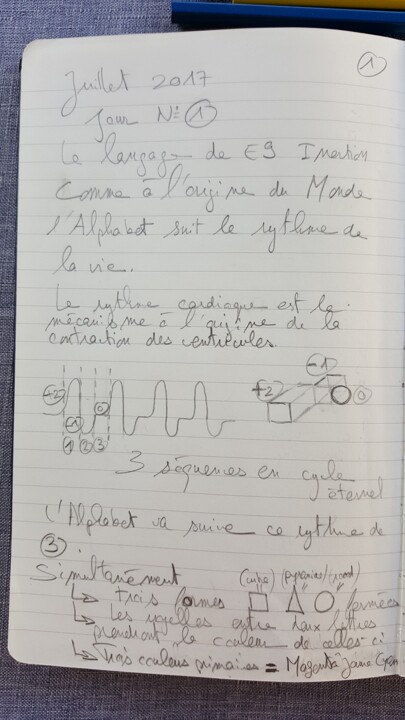 ①
Juillet 2017
Jour N° ①
Le langage de E9 Invention
Comme à l'origine du Monde
l'Alphabet suit le rythme de
la vie.
Le rytme cardiaque est le
mécanisme à l'origine de la
contraction des ventricules.
+2 -1 0
① ② ③
+2 -1 0
3 séquences en cycle
éternel
L'Alphabet va suivre ce rythme de
③.
Simultanément (cube) (pyramide) (rond)
↳ trois formes □ △ ○ fermées
↳ Les voyelles entre deux lettres
prendront la couleur de celles ci
↳ Trois couleurs primaires = Magenta Jaune Cyan